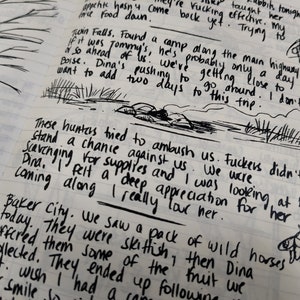 rabbits tonight
other taught her
they're fucking effective. My
appetite hasn't come back yet. Trying
food down.
Twin Falls. Found a camp along the main highway
if it was Tommy's, he's probably only a day
or so ahead of us. We're getting close to
Boise. Dina's pushing to go around. I don't
want to add two days to this trip.
These hunters tried to ambush us. Fuckers didn't
stand a chance against us. We were
scavenging for supplies and I was looking at
Dina. I felt a deep appreciation for her
coming along. I really love her.
Baker City. We saw a pack of wild horses
today. They were skittish, then Dina
offered them some of the fruit we
collected. They ended up following
smile so
I wish I had a